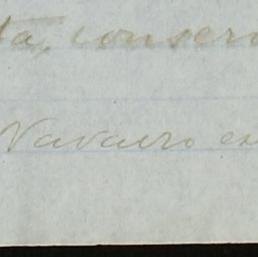 ta, conser
Navarro en